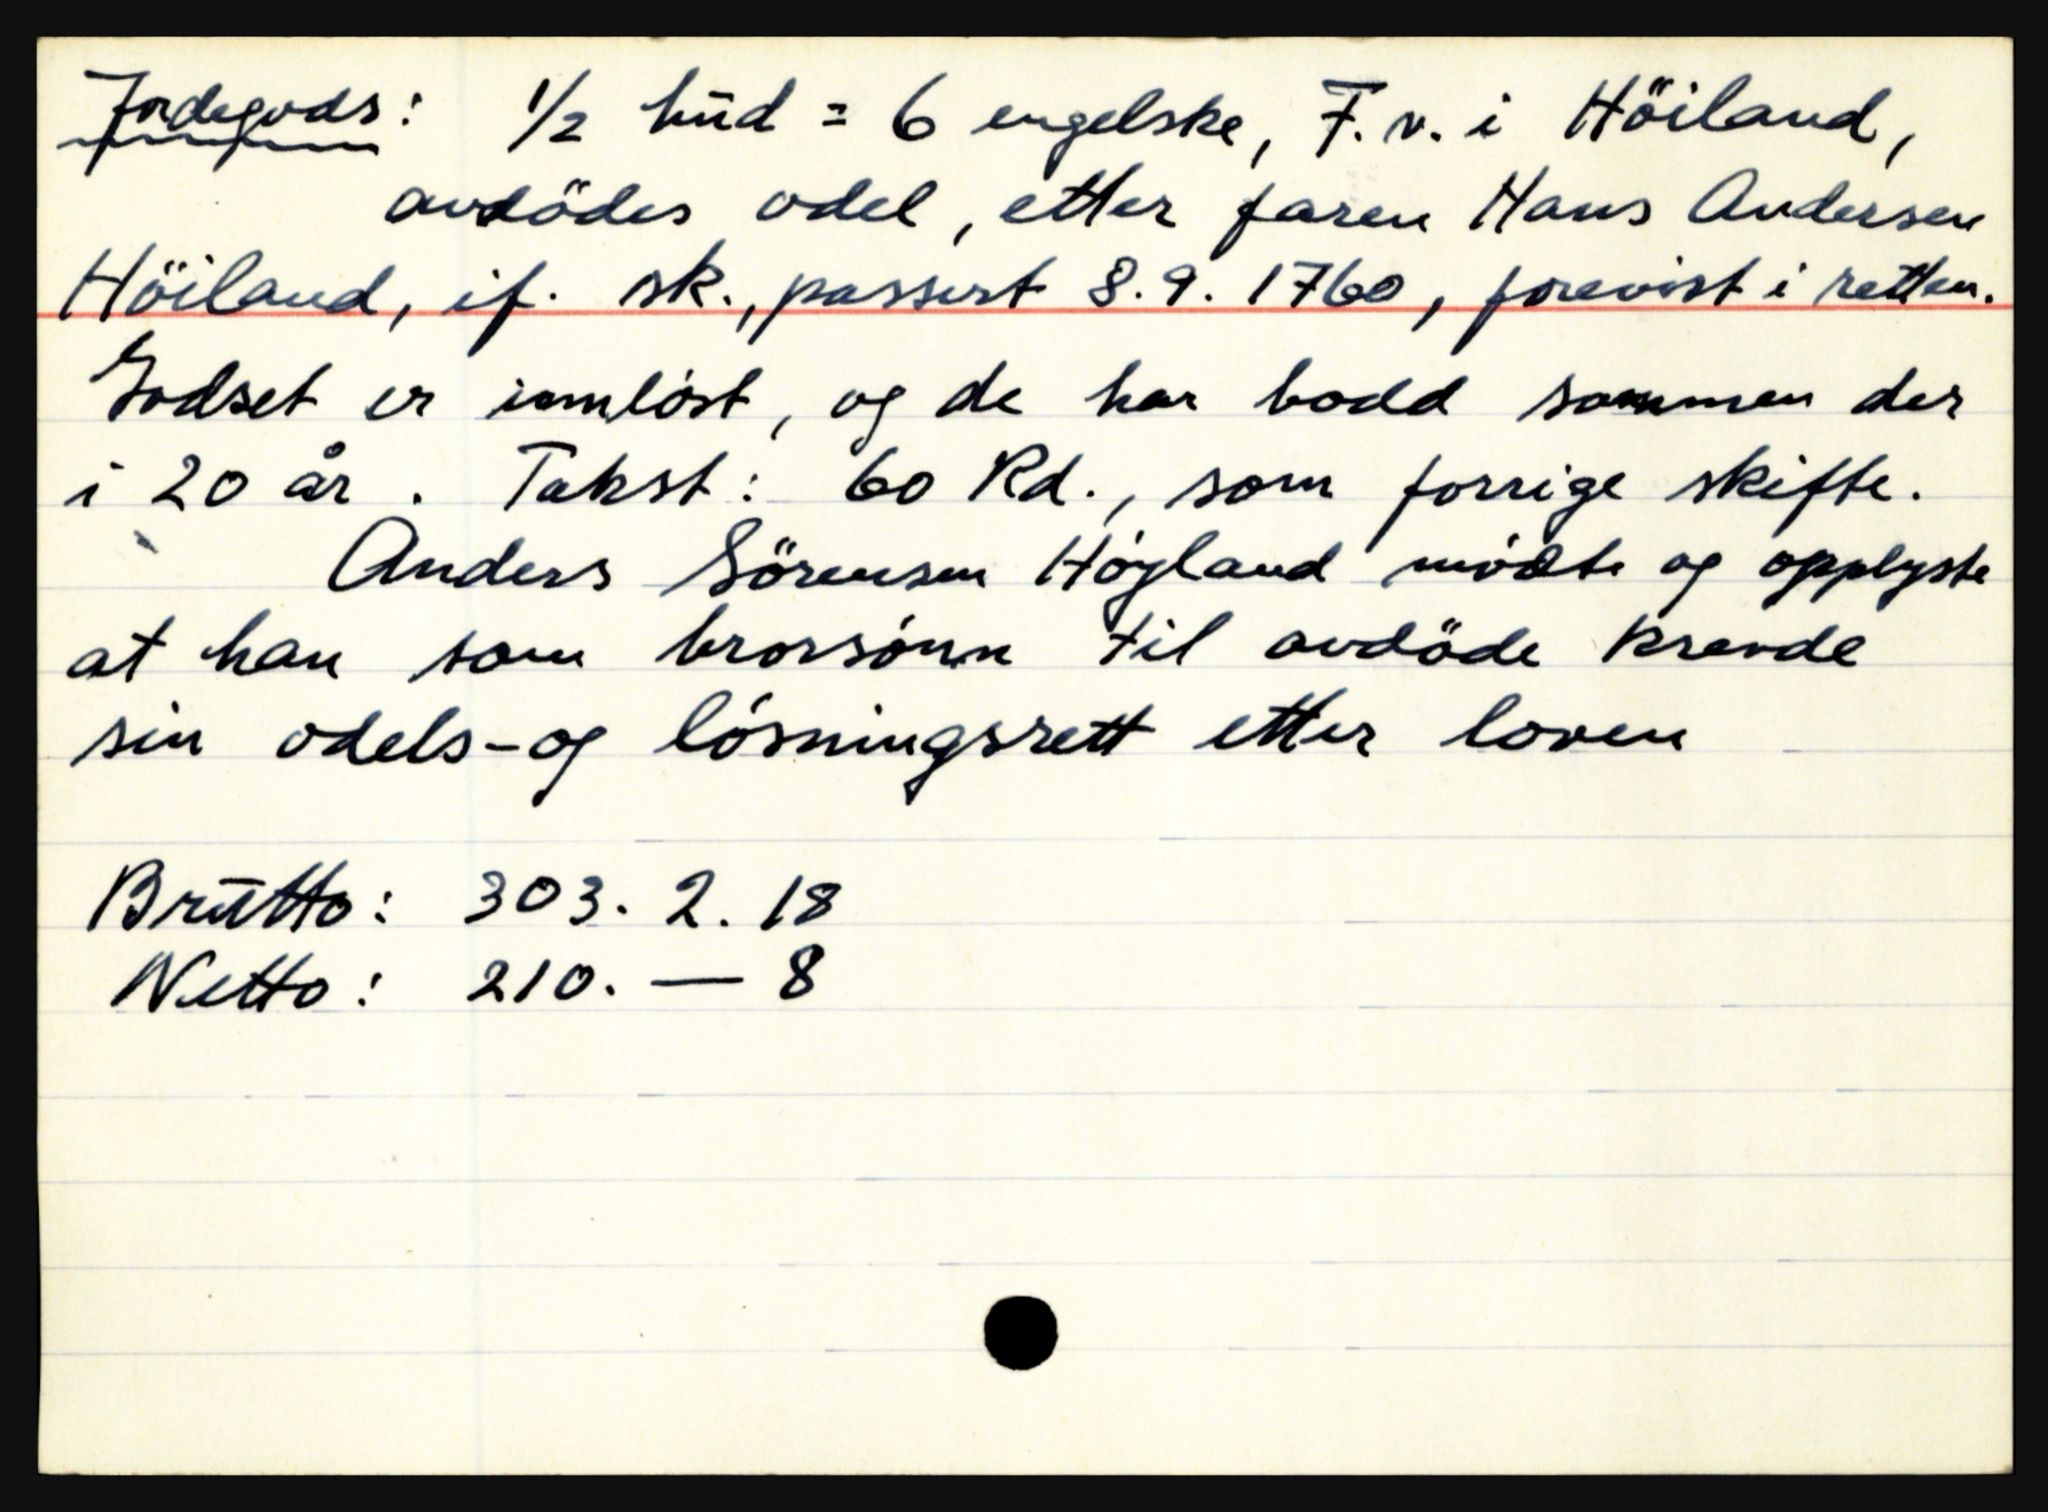 Jordegods: 1/2 hud = 6 engelske, F.v. i Höiland,
avdödes odel, etter faren Hans Andersen
Höiland, if. sk., passert 8.9.1760, forevist i retten.
Godset er innlöst, og de har bodd sammen der
i 20 år. Takst: 60 Rd., som forrige skifte.
Anders Sörensen Höyland mödte og opplyste
at han som brorsönn til avdöde krevde
sin odels- og lösningsrett etter loven
Brutto: 303. 2. 18
Netto: 210. — 8